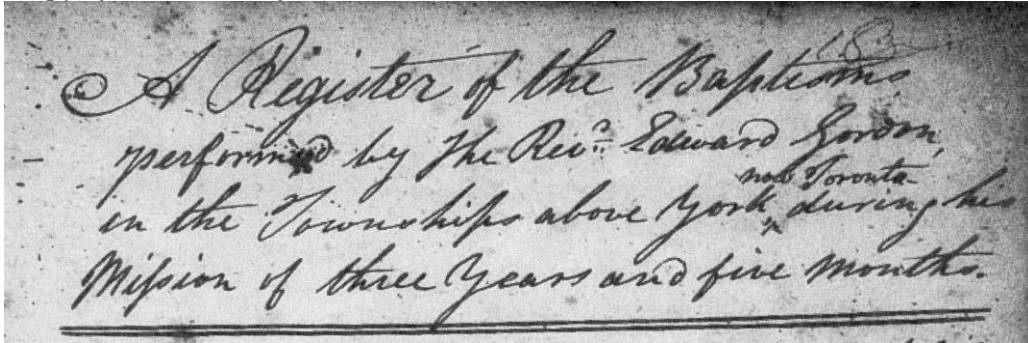 A Register of the Baptisms
performed by The Revd. Edward Gordon,
now Toronto
in the Townships above York, during his
Mission of three Years and five months.